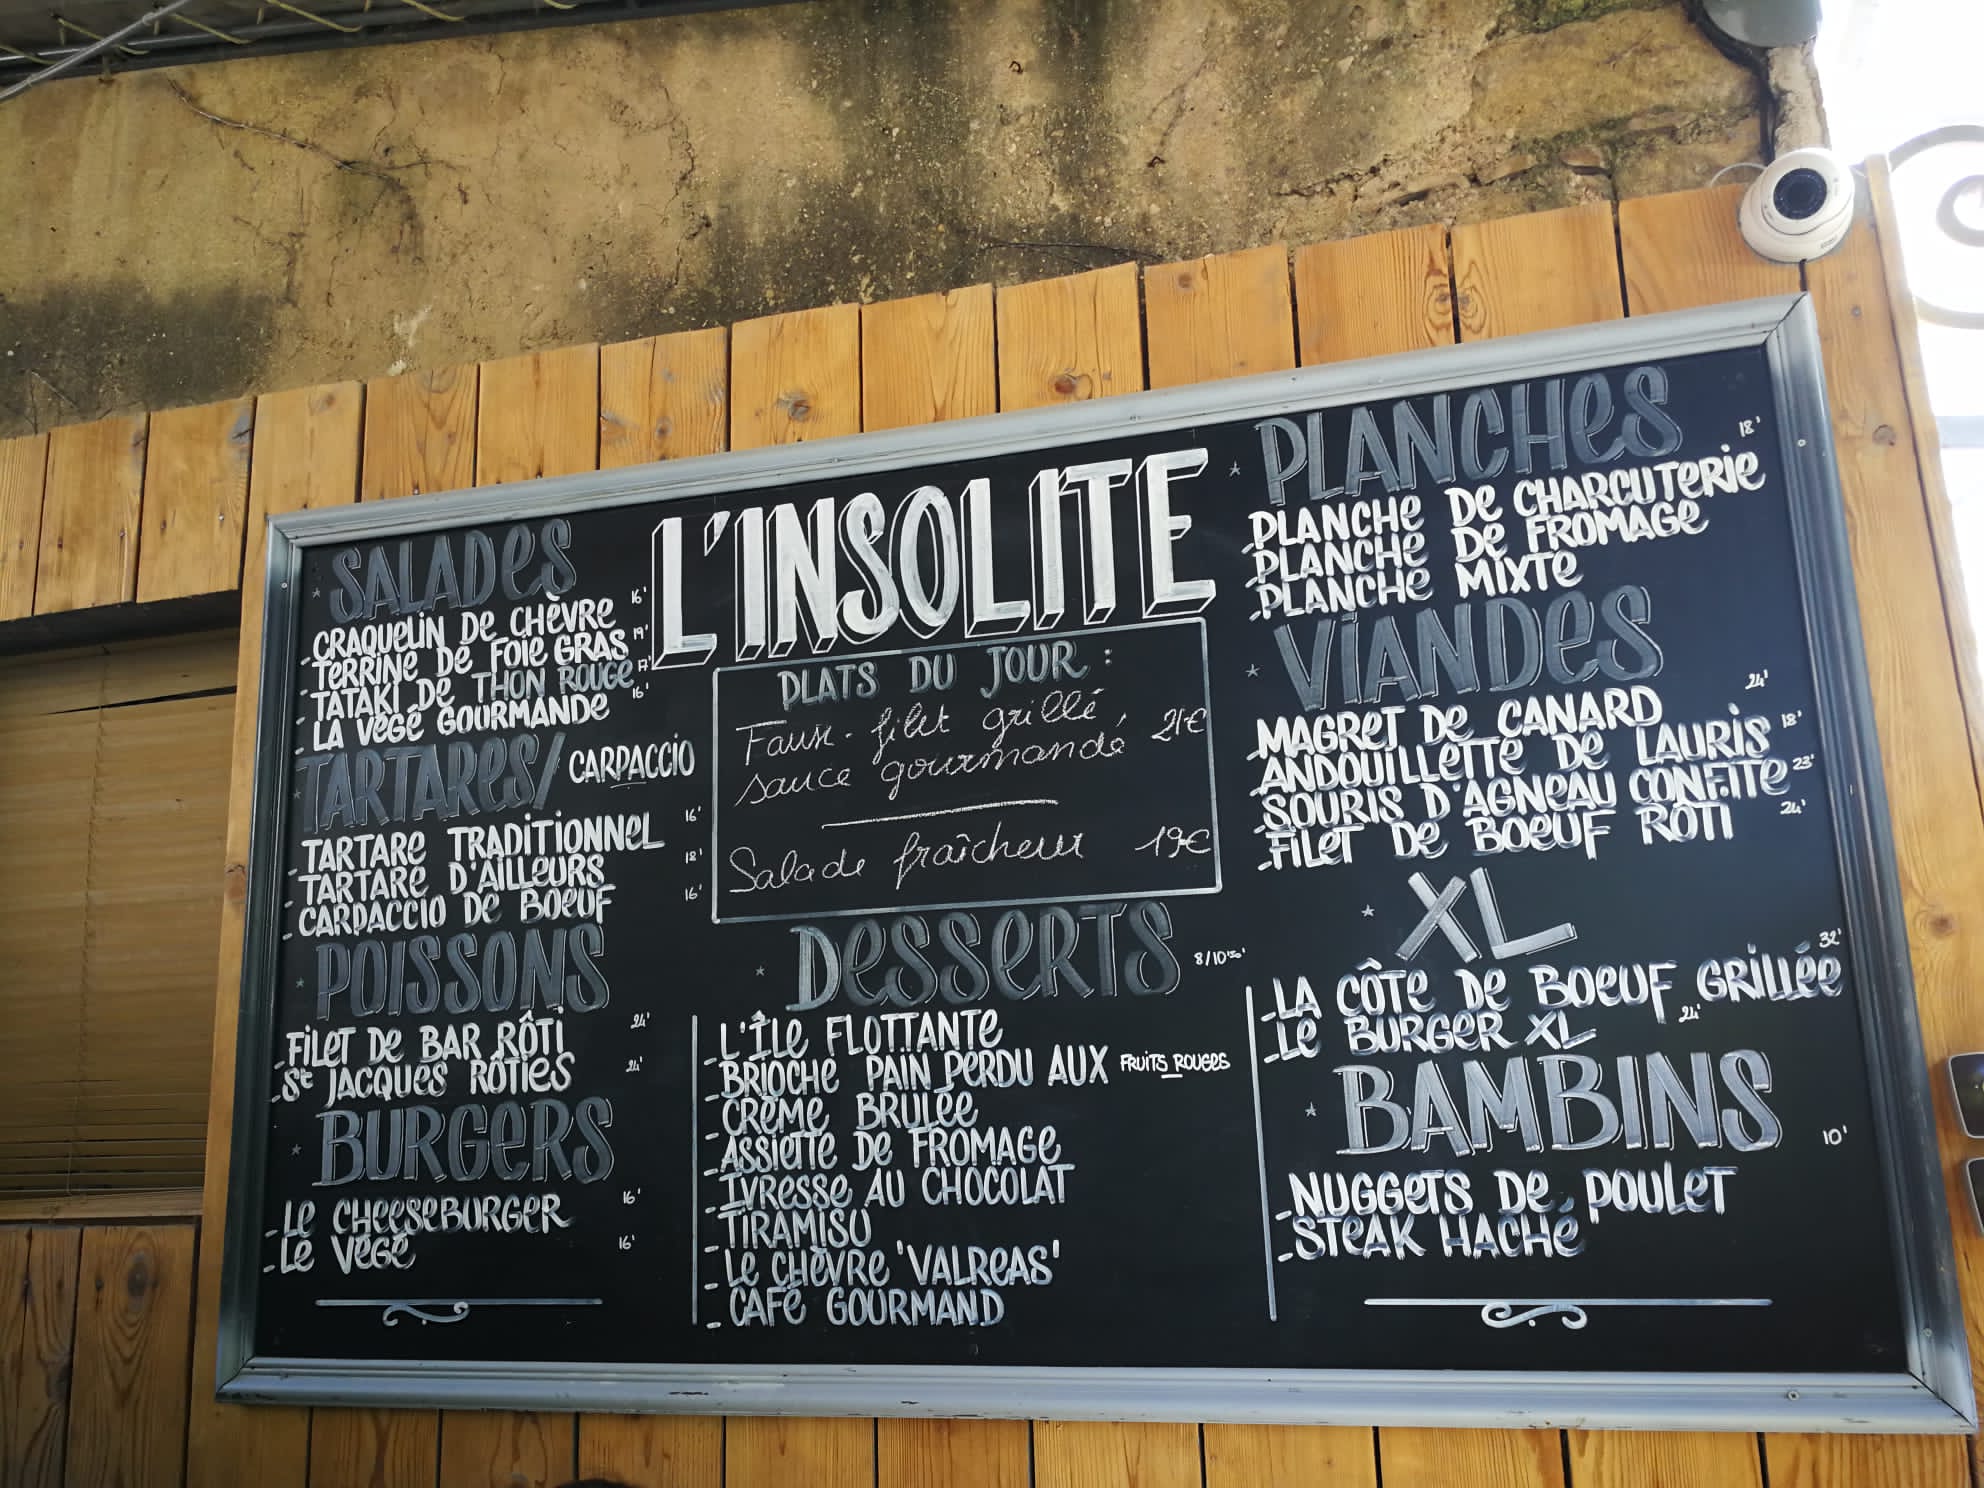 L'INSOLITE
* SALADES
- CRAQUELIN DE CHÈVRE 16'
- TERRINE DE FOIE GRAS 19'
- TATAKI DE THON ROUGE 17'
- LA VÉGÉ GOURMANDE 16'
* TARTARES/ CARPACCIO
- TARTARE TRADITIONNEL 16'
- TARTARE D'AILLEURS 18'
- CARPACCIO DE BOEUF 16'
* POISSONS
- FILET DE BAR RÔTI 24'
- St JACQUES RÔTIES 24'
* BURGERS
- LE CHEESEBURGER 16'
- LE VÉGÉ 16'
PLATS DU JOUR :
Faux-filet grillé,
sauce gourmande 21€
Salade fraîcheur 19€
* DESSERTS 8/10'50'
- L'ÎLE FLOTTANTE
- BRIOCHE PAIN PERDU AUX FRUITS ROUGES
- CRÈME BRULÉE
- ASSIETTE DE FROMAGE
- IVRESSE AU CHOCOLAT
- TIRAMISU
- LE CHÈVRE 'VALREAS'
- CAFÉ GOURMAND
* PLANCHES 18'
- PLANCHE DE CHARCUTERIE
- PLANCHE DE FROMAGE
- PLANCHE MIXTE
* VIANDES
- MAGRET DE CANARD 24'
- ANDOUILLETTE DE LAURIS 18'
- SOURIS D'AGNEAU CONFITE 23'
- FILET DE BOEUF RÔTI 24'
* XL
- LA CÔTE DE BOEUF GRILLÉE 32'
- LE BURGER XL 24'
* BAMBINS 10'
- NUGGETS DE POULET
- STEAK HACHÉ